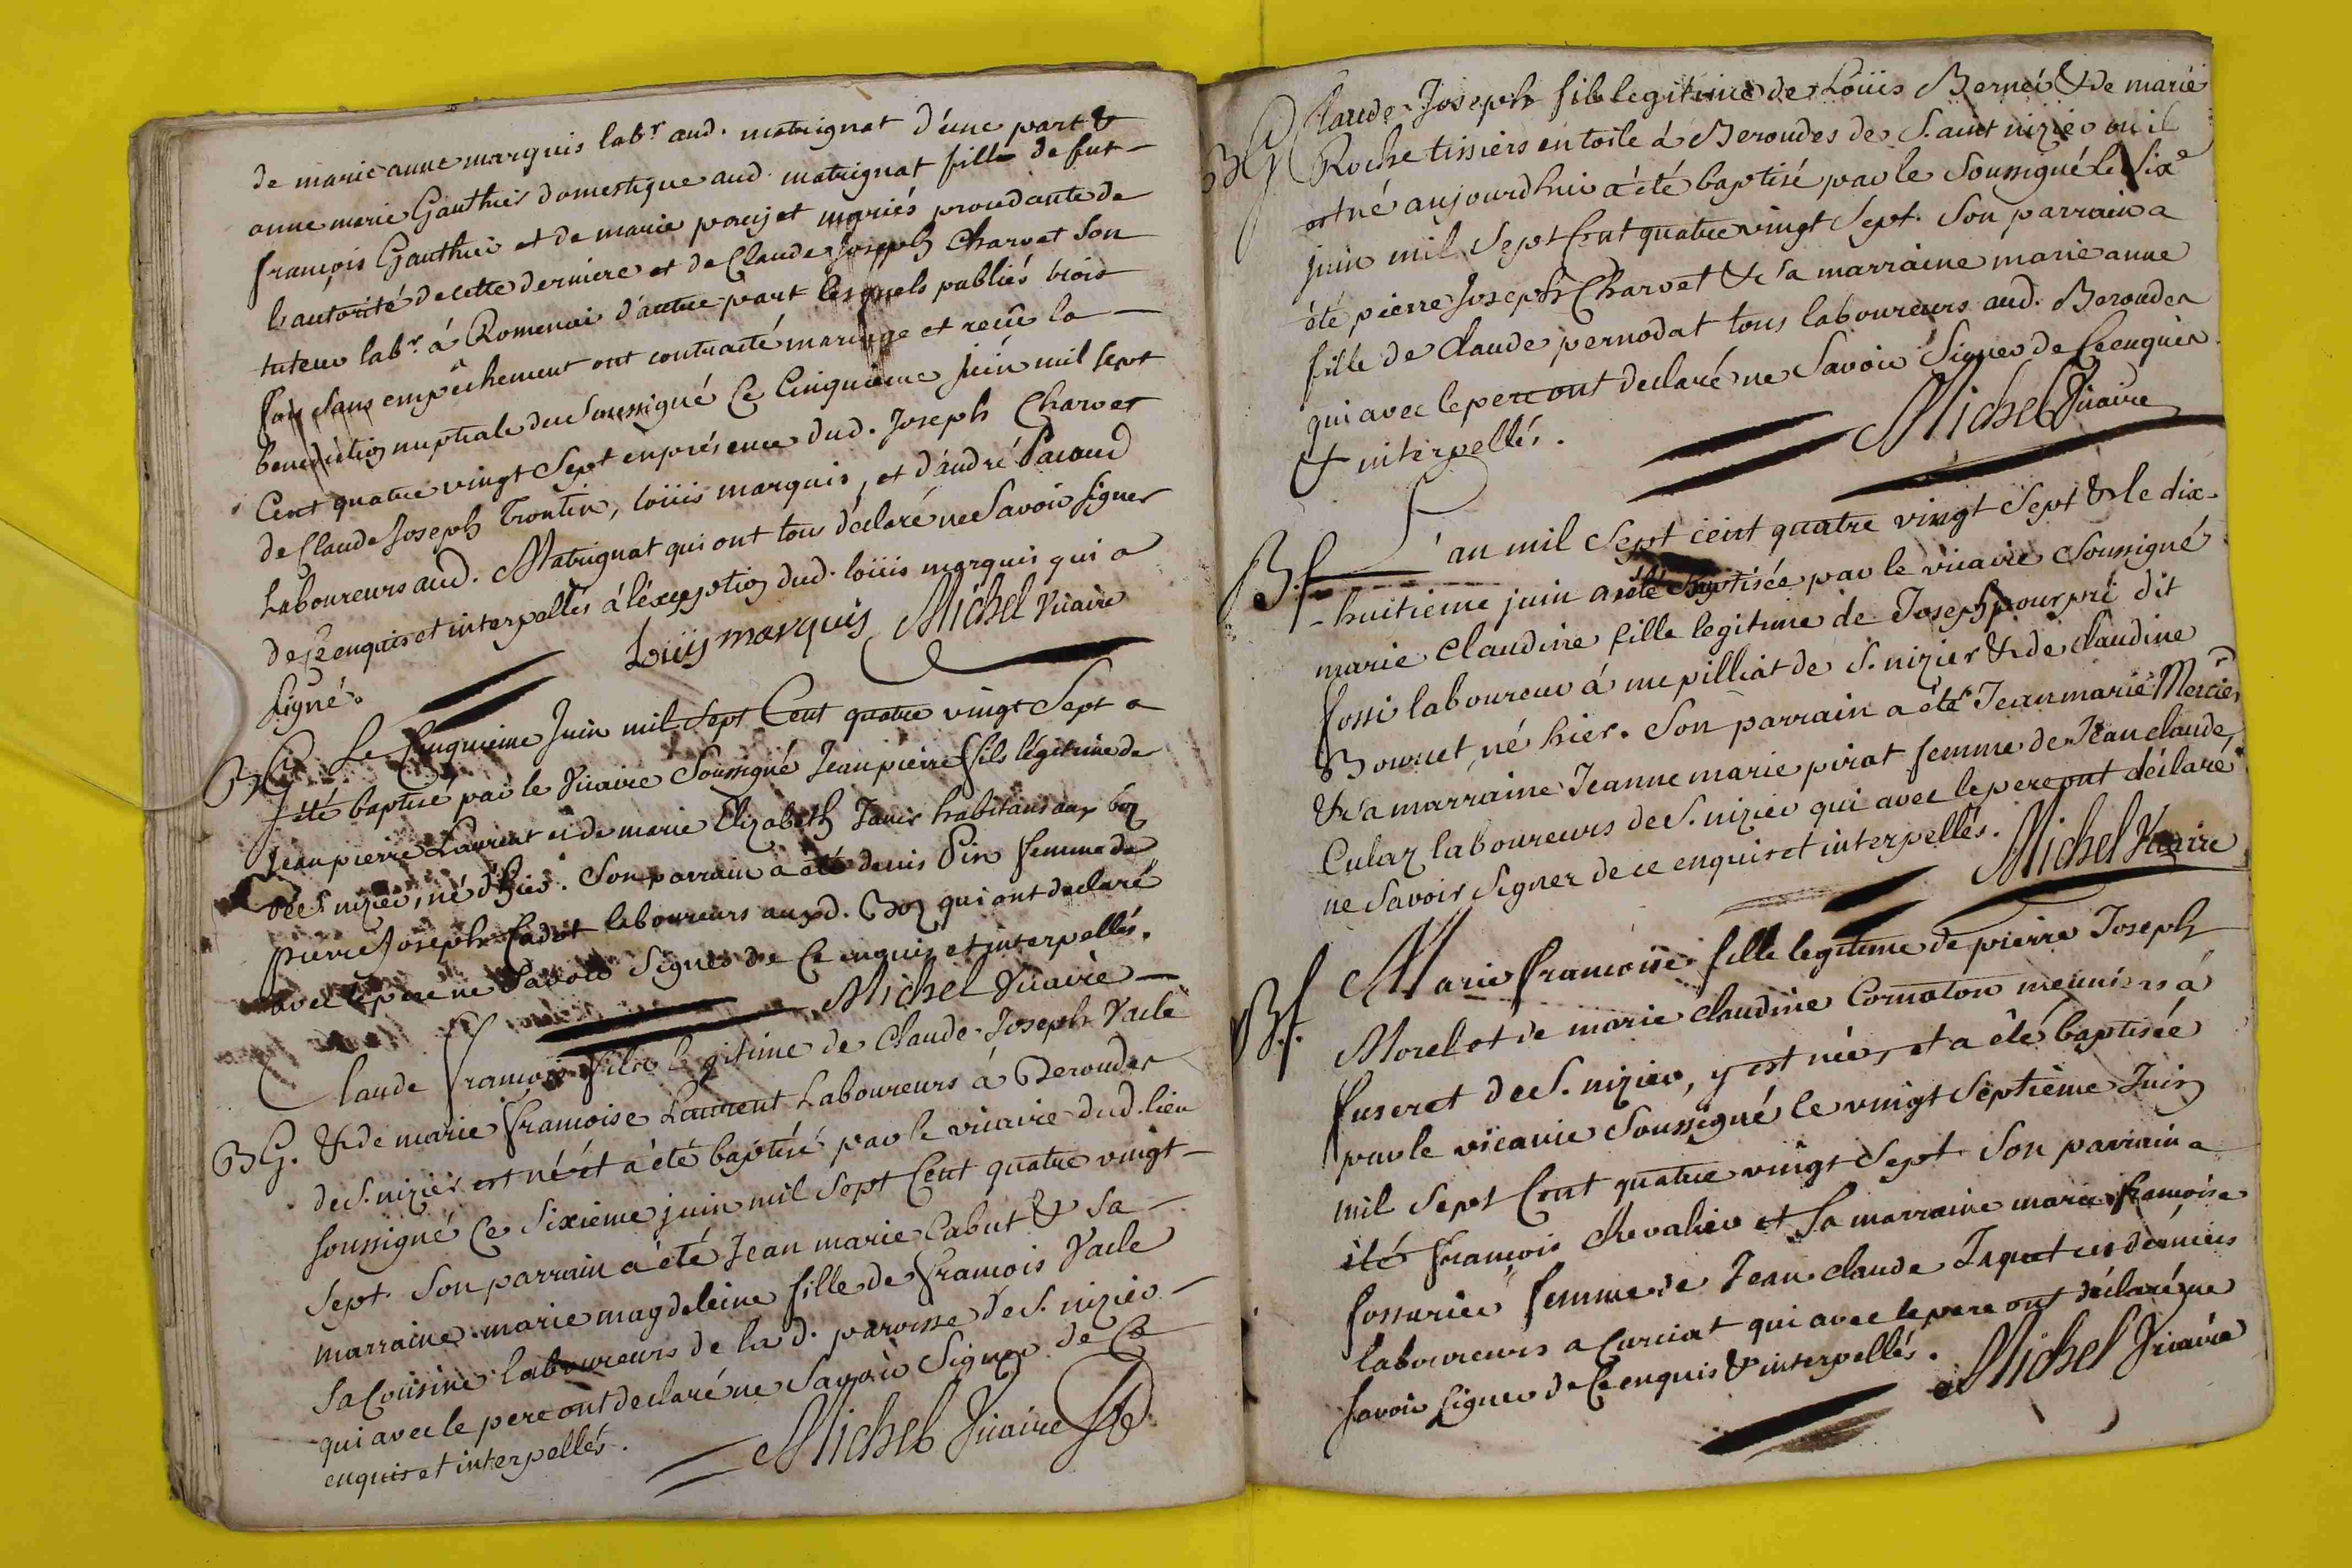 de marie anne marquis labr. aud. matrignat d'une part &
anne marie Gauthier domestique aud. matrignat fille de fut
françois Gauthier et de marie mariés procedante de
l'autorité de cette derniere et de Claude Joseph Charvet son
tuteur labr. à Romenai d'autre part lesquels publiés trois
fois sans empêchement ont contracté mariage et reçu la
benediction nuptiale du soussigné Ce Cinquieme juin mil sept
Cent quatre vingt Sept en présence dud. Joseph Charvet
de Claude Joseph Trontin, loüis marquis, et d'andré Pacoud
Laboureurs aud. Matrignat qui ont tous déclaré ne Savoir signer
de Ce enquis et interpellés à l'éxception dud. loüis marquis qui a
signé.
Loüis marquis Michel Vicaire
BG. Le Cinquieme Juin mil Sept Cent quatre vingt Sept a
été baptisé par le Vicaire Soussigné Jean pierre fils légitime de
Jean pierre Laurent et de marie Elizabeth Janin habitans aux boz
de S. nizier, né d'hier. Son parrain a été denis Pin femme de
pierre Joseph Cadot laboureurs auxd. Boz qui ont declaré
avec le pere ne Savoir Signer de Ce enquis et interpellés.
Michel Vicaire
Claude françois fils legitime de Claude Joseph Vacle
BG. & de marie françoise Laurent Laboureurs à Beroudes
de S. nizier est né et a été baptisé par le vicaire dud. lieu
soussigné Ce Sixieme juin mil Sept Cent quatre vingt
Sept. Son parrain a été Jean marie Cabut & sa
marraine marie magdeleine fille de françois Vacle
sa Cousine laboureurs de la d. paroisse de S. nizier
qui avec le pere ont declaré ne Savoir Signer de Ce
enquis et interpellés.
Michel Vicaire
BG Claude Joseph fils legitime de Loüis Bernei & de marie
Roche tissiers en toile à Beroudes de Saint nizier où il
est né aujourdhui a été baptisé par le Soussigné Le Sixe
juin mil Sept Cent quatre vingt Sept. Son parrain a
été pierre Joseph Charvet & sa marraine marie anne
fille de Claude pernodat tous laboureurs aud. Beroudes
qui avec le pere ont declaré ne Savoir Signer de Ce enquis
& interpellés.
Michel Vicaire
B.f. L'an mil Sept cent quatre vingt Sept & le dix-
-huitieme juin a été Baptisée par le vicaire Soussigné
marie Claudine fille legitime de Joseph pourpri dit
fossi laboureur à mepilliat de S. nizier & de claudine
Bourcet, né hier. Son parrain a été Jean marie Mercier
& sa marraine Jeanne marie pirat femme de Jean claude
Culaz laboureurs de S. nizier qui avec le pere ont déclaré
ne Savoir Signer de ce enquis et interpellés.
Michel Vicaire
B.f. Marie françoise fille legitime de pierre Joseph
Morel et de marie claudine Cornaton meuniers à
fuseret de S. nizier, y est née, et a été baptisée
par le vicaire Soussigné le vingt Septième Juin
mil Sept Cent quatre vingt Sept. Son parrain a
été françois Chevalier et Sa marraine marie françoise
fossurier femme de Jean claude Jaquet ces derniers
laboureurs a Curciat qui avec le pere ont déclaré ne
Savoir Signer de Ce enquis & interpellés.
Michel Vicaire